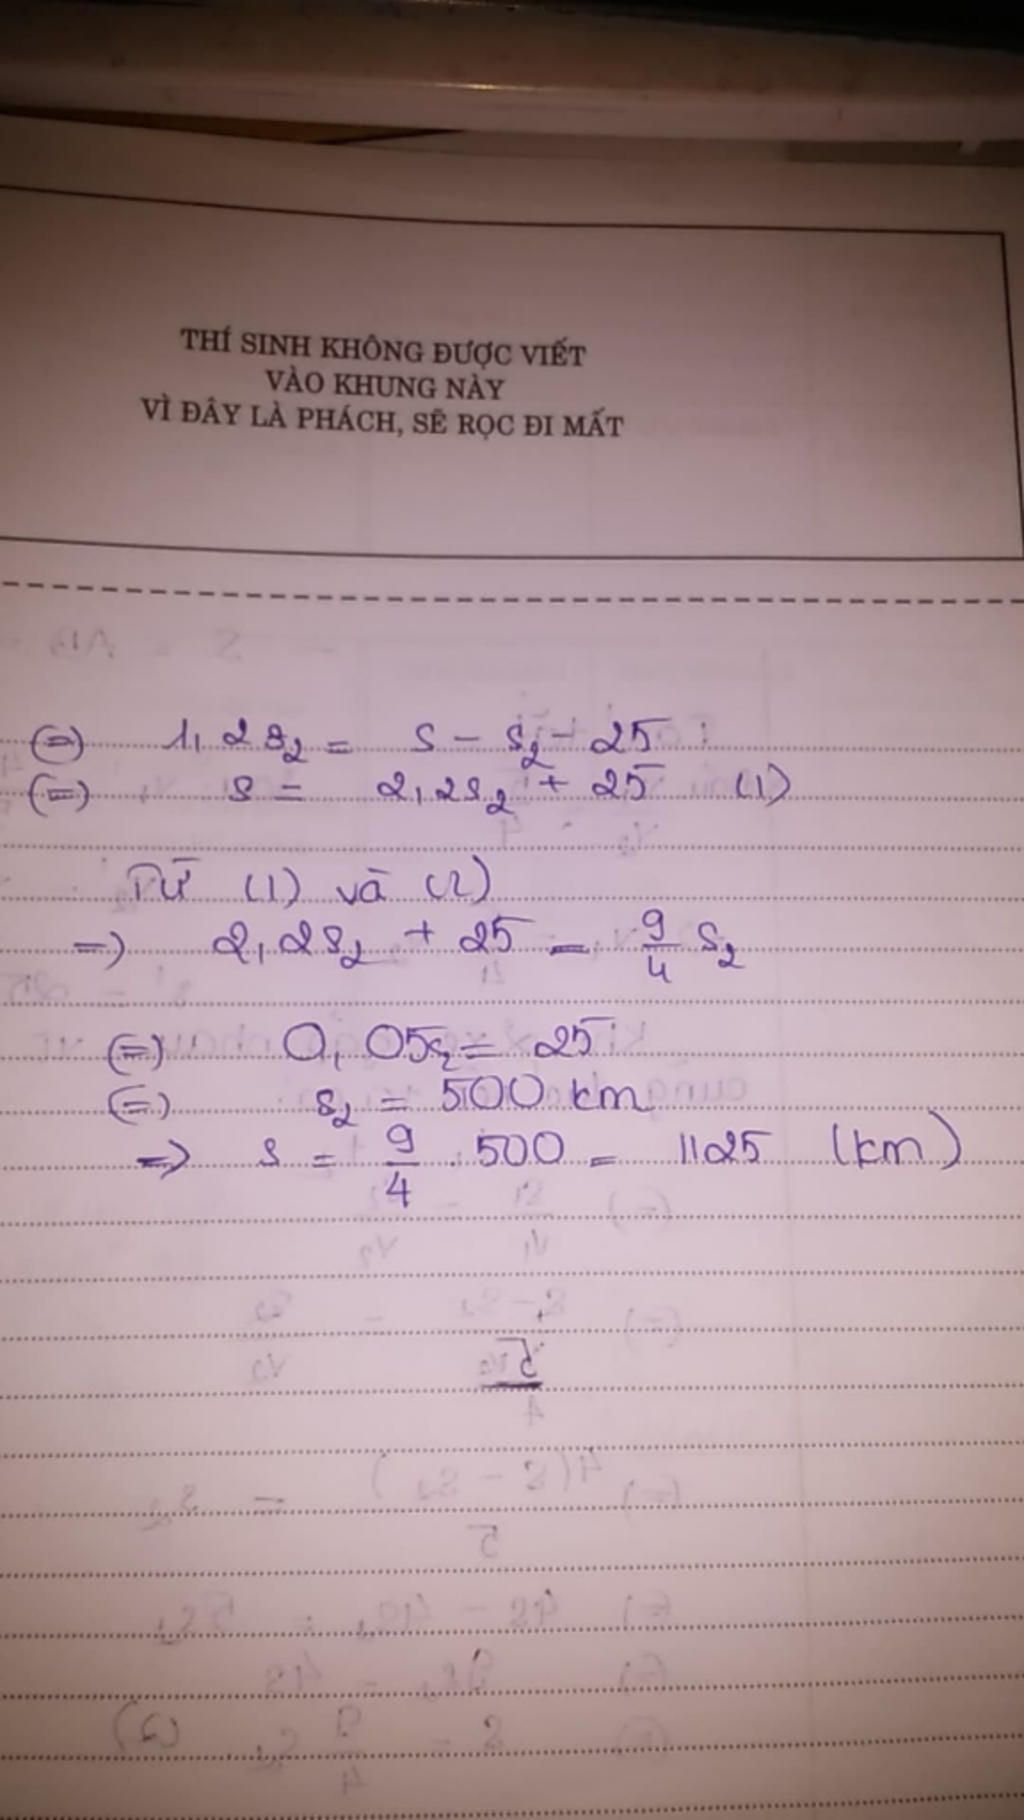 THÍ SINH KHÔNG ĐƯỢC VIẾT
VÀO KHUNG NÀY
VÌ ĐÂY LÀ PHÁCH, SẼ RỌC ĐI MẤT
(=) 1,2s₂ = s - s₂ - 25
(=) s = 2,2s₂ + 25 (1)
Từ (1) và (2)
=) 2,2s₂ + 25 = 9/4 s₂
(=) 0,05s₂ = 25
(=) s₂ = 500 km
=> s = 9/4 . 500 = 1125 (km)